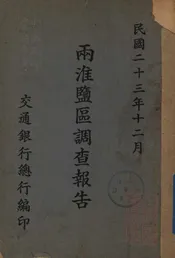 民國二十三年十二月
兩淮鹽區調查報告
交通銀行總行編印